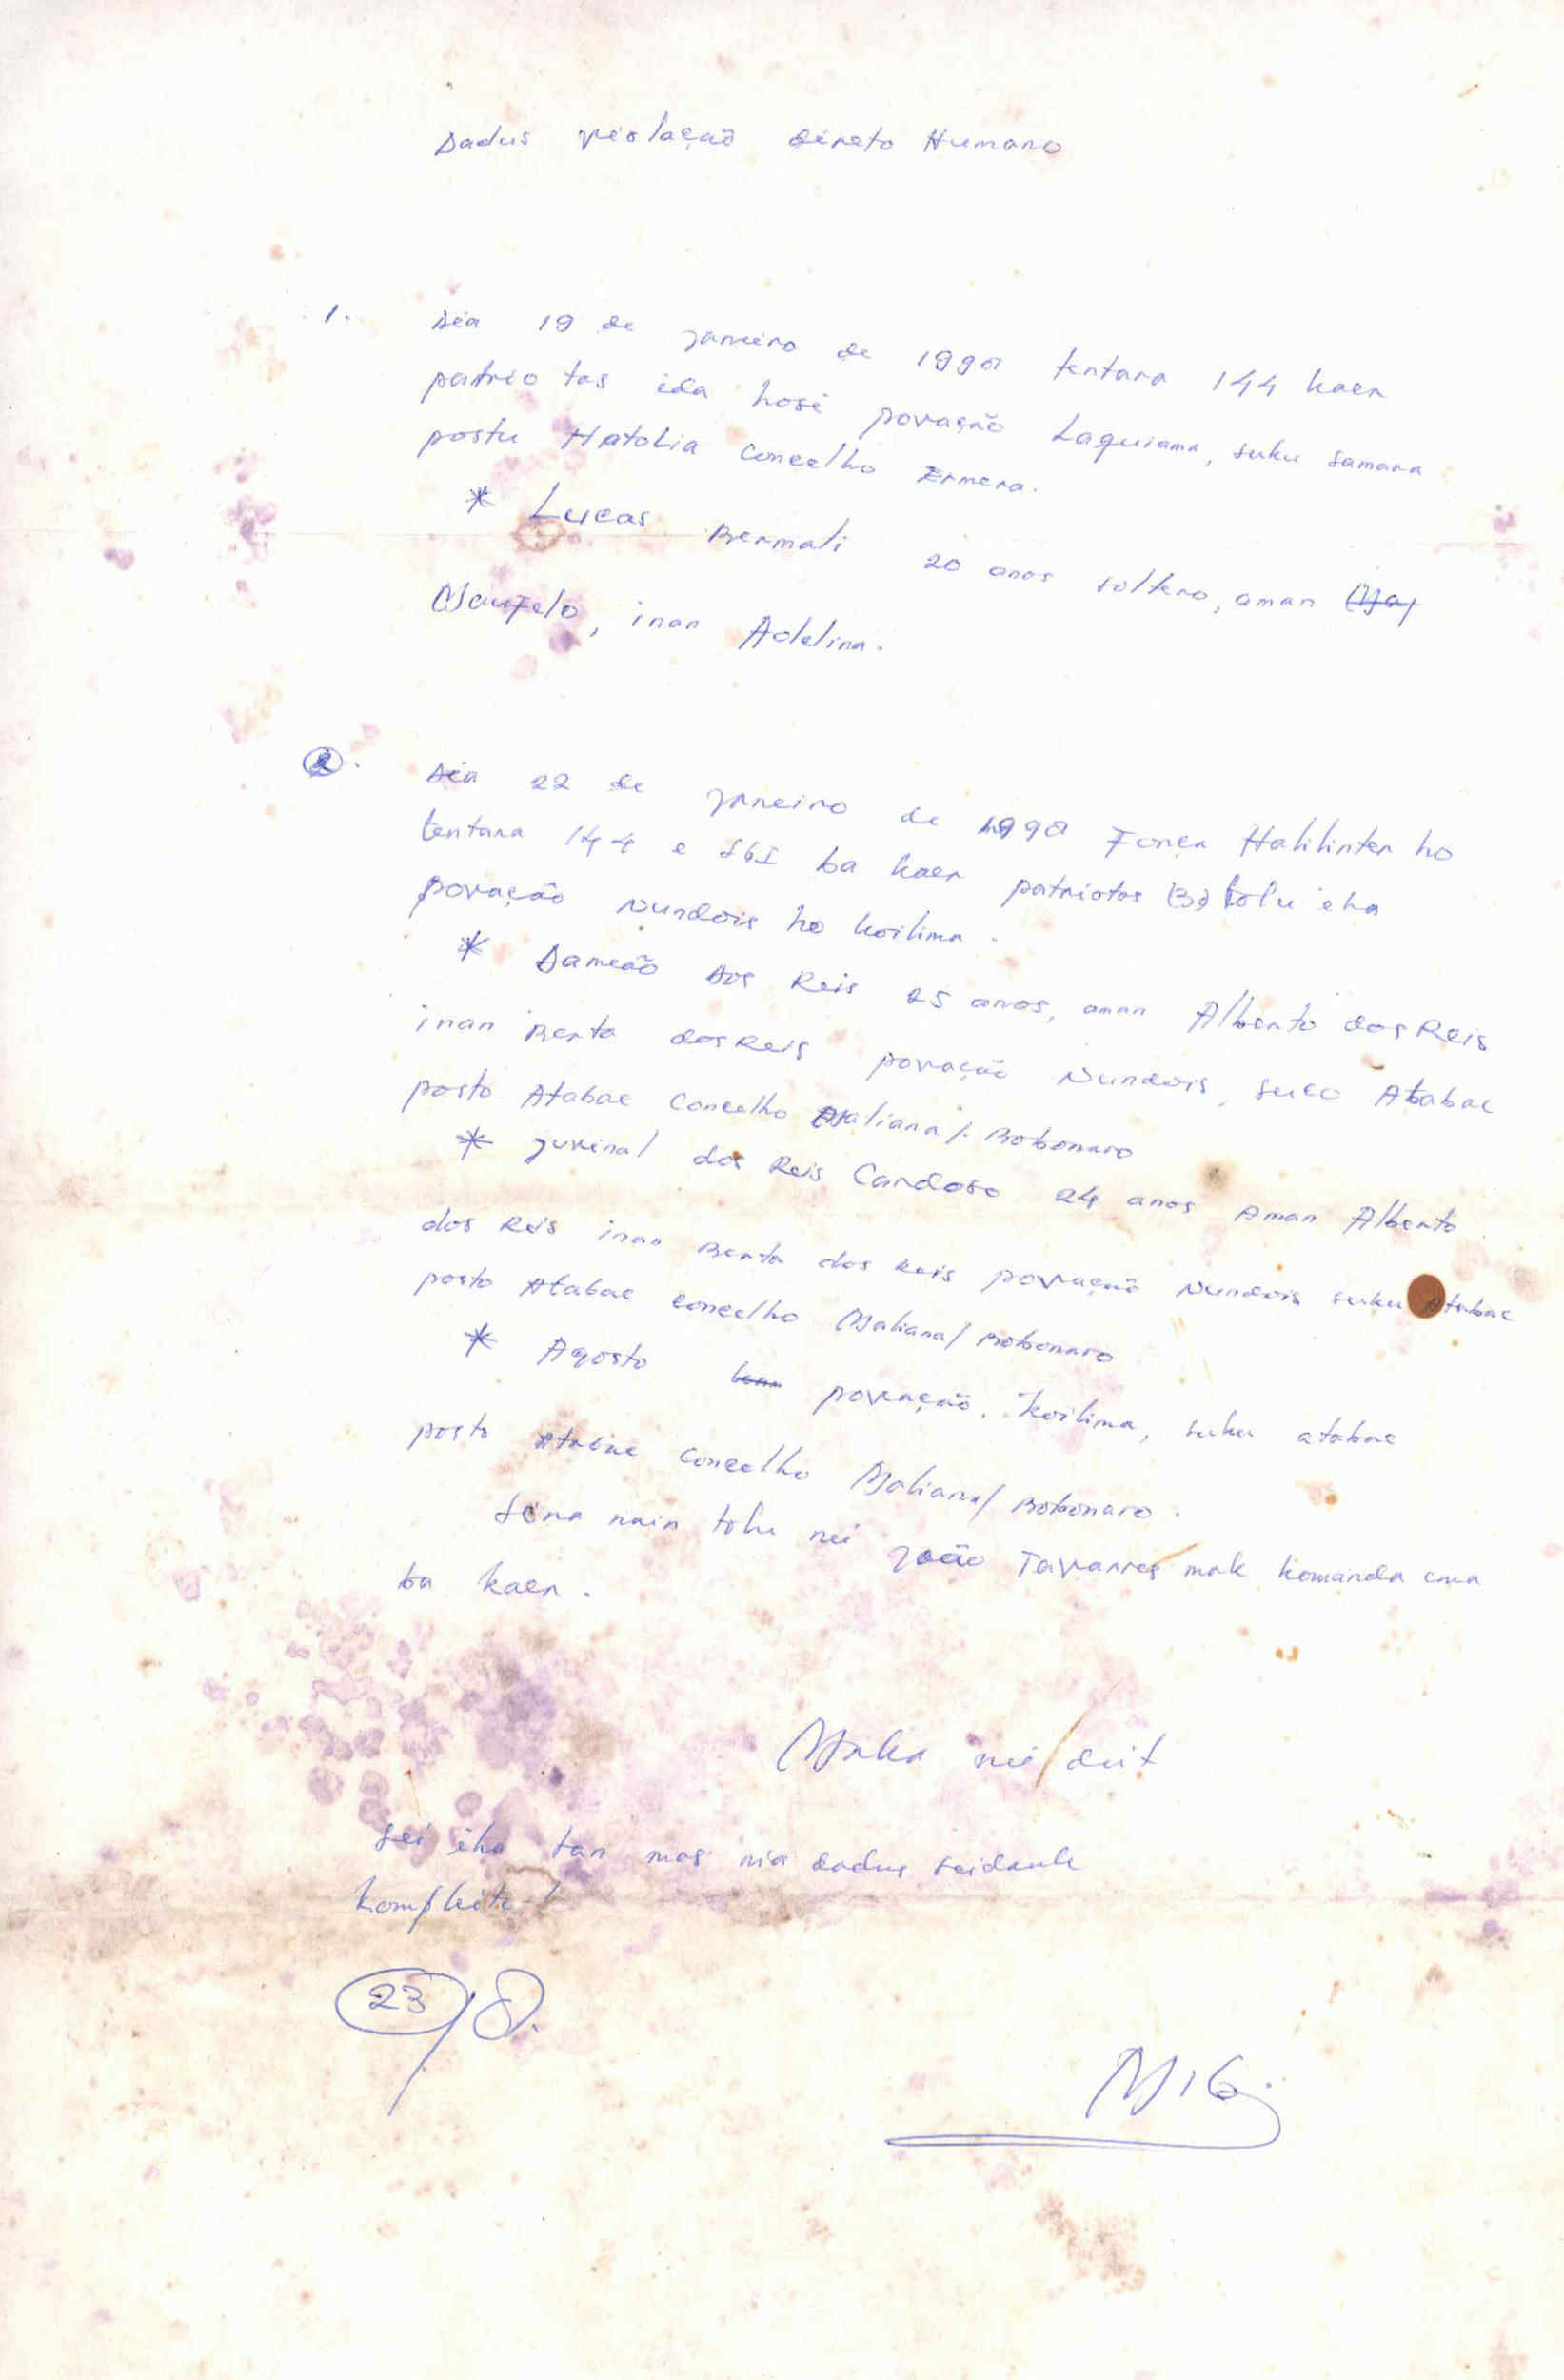 Dadus violação direto Humano
1. Dia 19 de janeiro de 1998 tentara 144 kaer
patriotas ida hosi povação Laquiama, suku Samara
postu Hatolia Concelho Ermera.
* Lucas Bermali 20 anos soltero, aman
Maufelo, inan Adelina.
2. Dia 22 de janeiro de 1998 Força Halilinter ho
tentara 144 e SGI ba kaer patriotas (3) tolu iha
povação Nundois ho Koilima.
* Damião dos Reis 25 anos, aman Alberto dos Reis
inan Berta dos Reis povação Nundois, suco Atabae
posto Atabae Concelho Maliana/. Bobonaro
* Juvinal dos Reis Cardoso 24 anos Aman Alberto
dos Reis inan Berta dos Reis povação Nundois suku Atabae
posto Atabae concelho Maliana/Bobonaro
* Agosto povação. Koilima, suku atabae
posto Atabae Concelho Maliana/Bobonaro.
Sira nain tolu nei João Tavarres mak komanda ema
ba kaer.
Maka nei/deit
Sei iha tan mas nia dadus seidauk
kompleitu!
23/8.